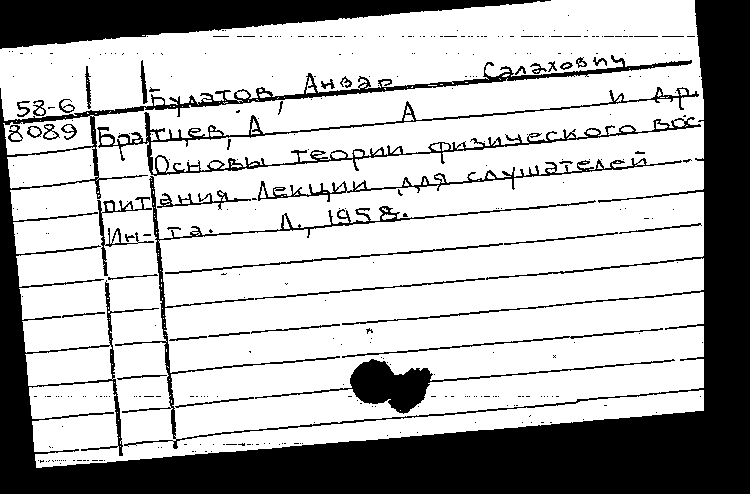 Булатов, Анвар Салахович
58-6
8089 Братцев, А А и др.
Основы теории физического вос-
питания. Лекции для слушателей
Ин-та. Л., 1958.